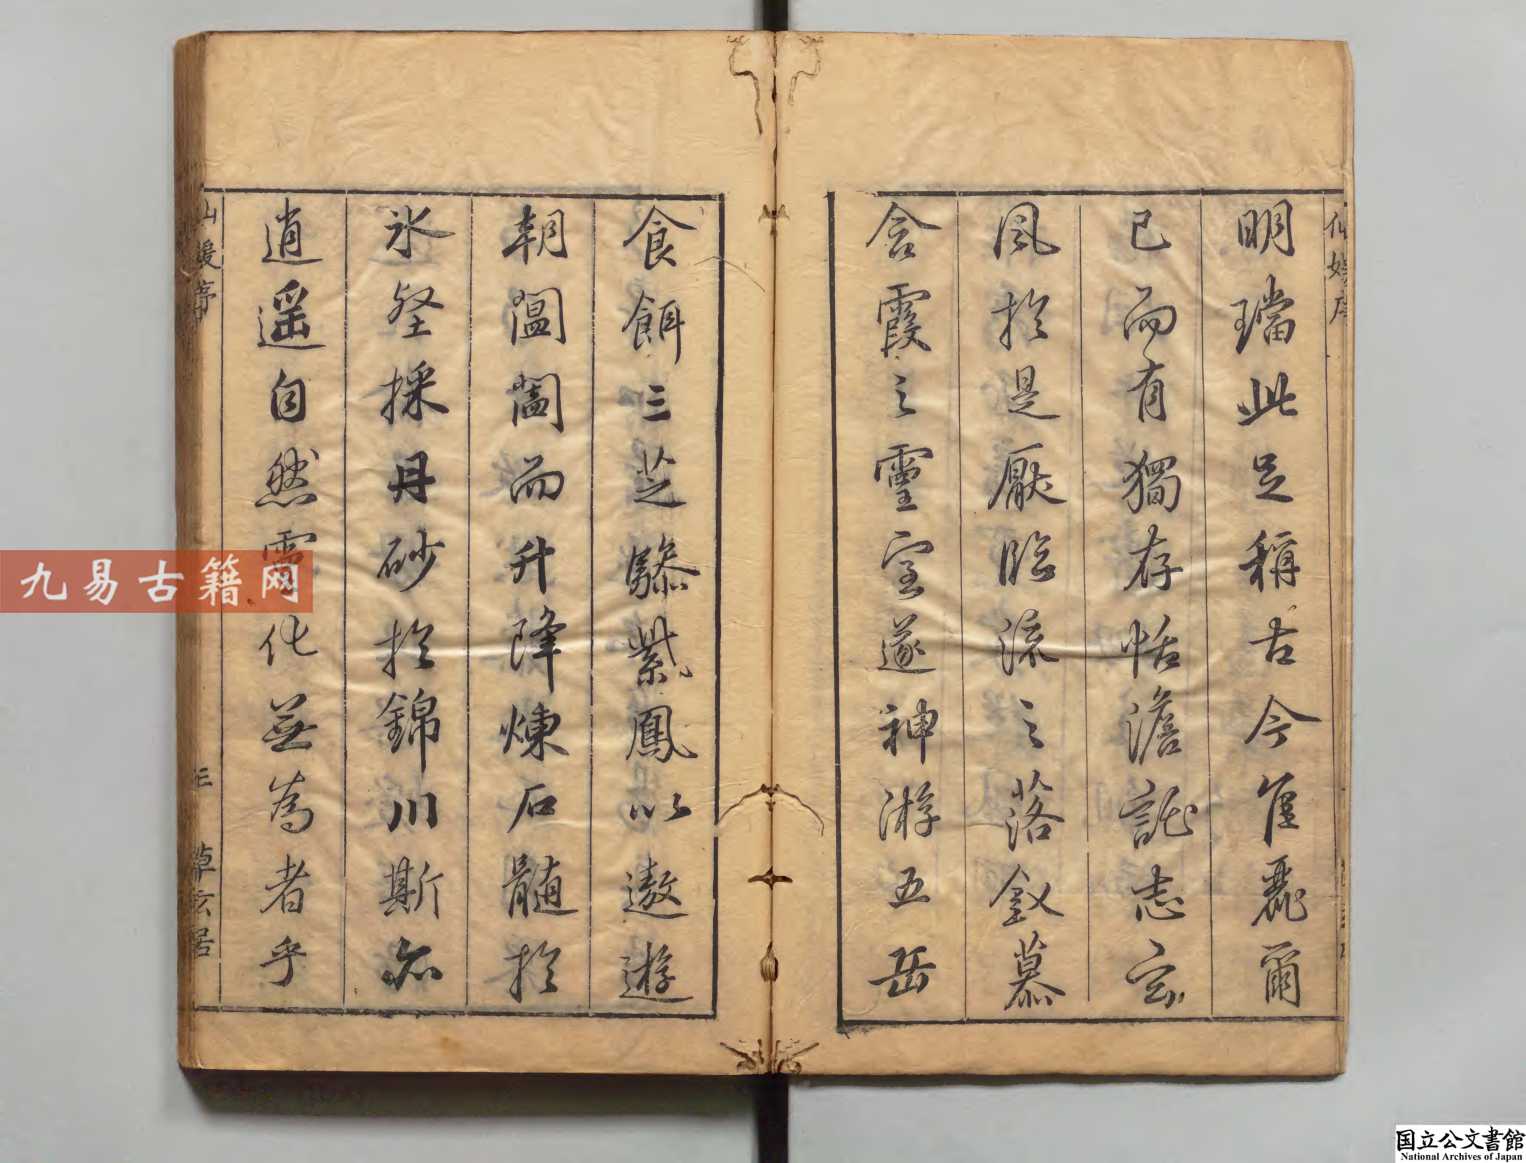 明璫此足稱古今隹麗爾
已而有獨存恬澹託志玄
風於是厭臨流之落釵慕
含霞之靈室遂神游五岳
食餌三芝驂紫鳳以遨遊
朝閶闔而升降煉石髓於
氷壑採丹砂於錦川斯亦
逍遥自然靈化無為者乎
草玄居
九易古籍网
国立公文書館
National Archives of Japan